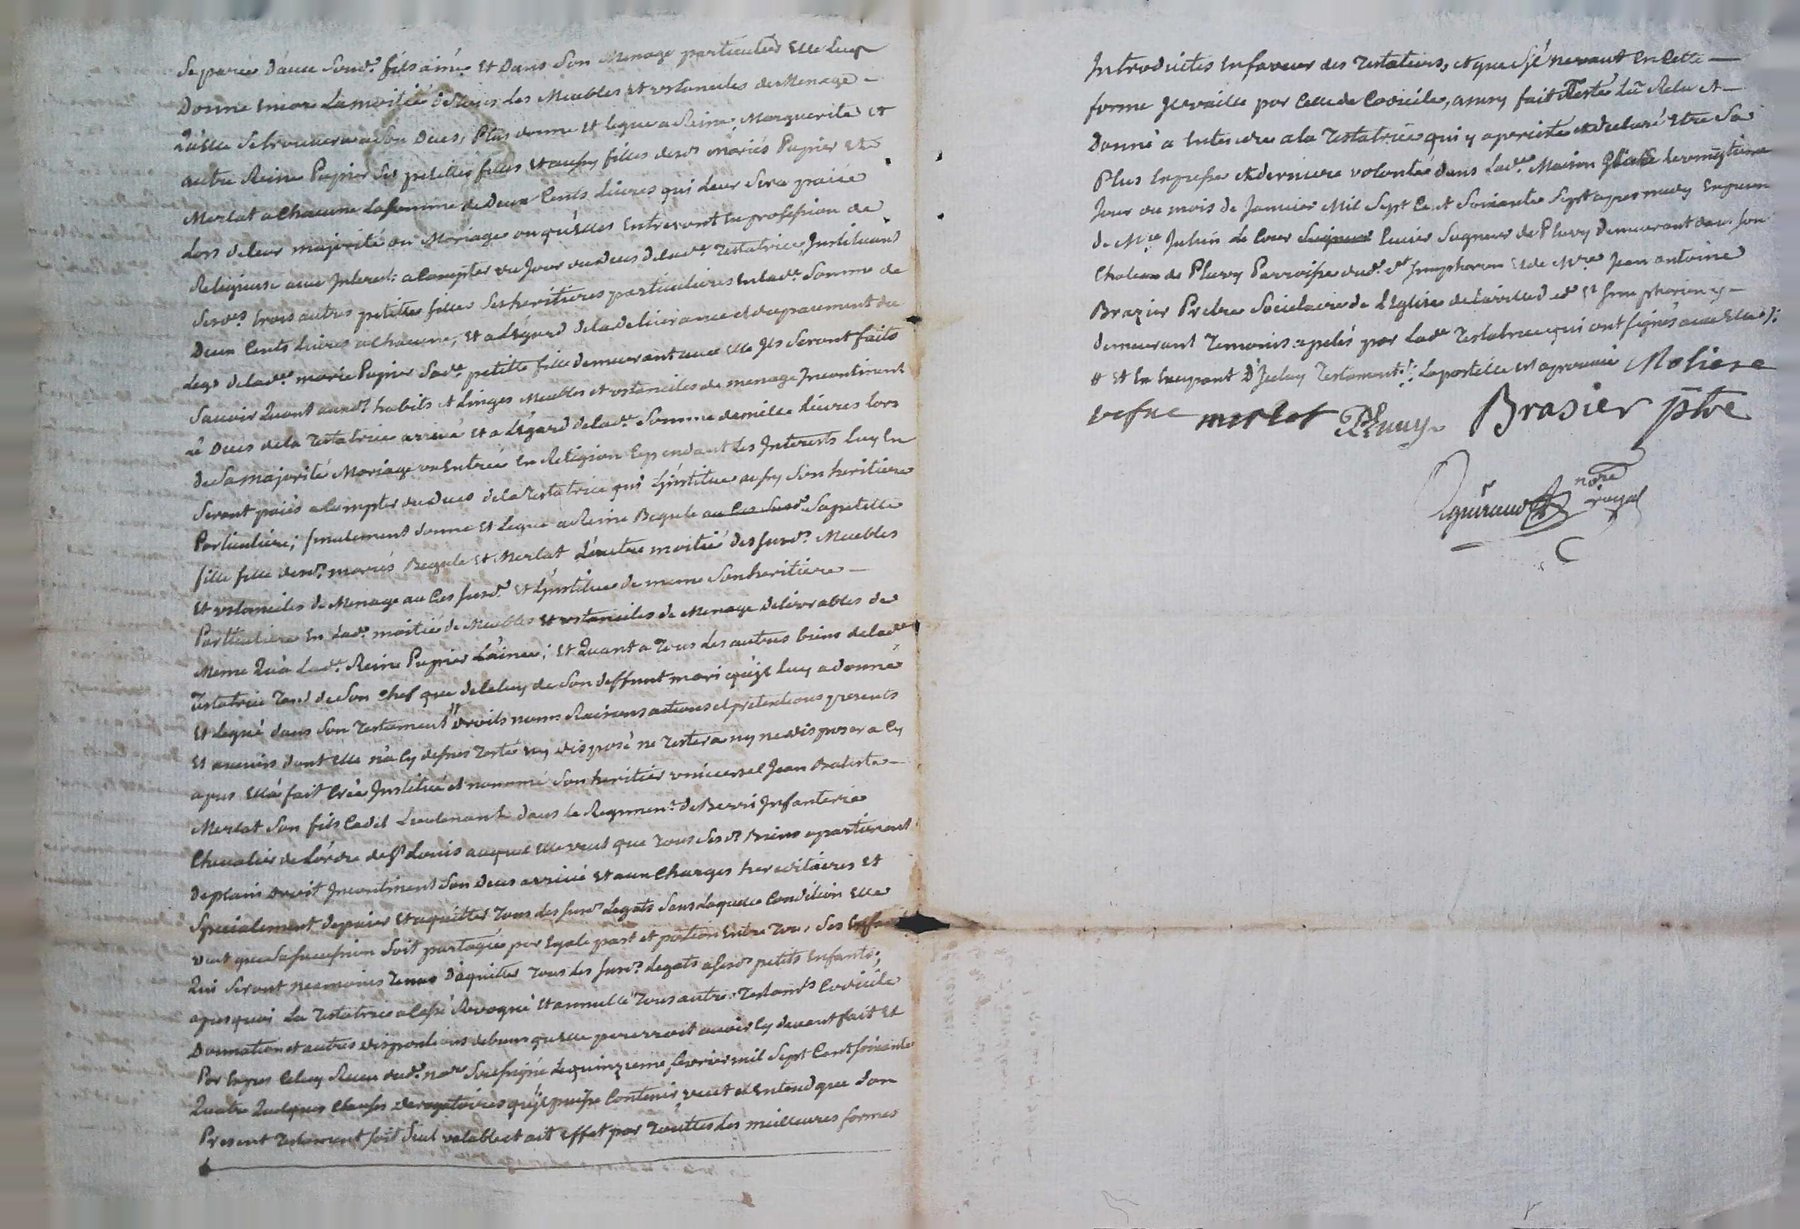 Separée d'avec Sond.t fils ainé Et Dans Son Menage particulier Elle luy
Donne encore La moitié de Tous les Meubles Et Ustancules de Menage
Qu'elle Se trouvera a Son Deces; Plus donne Et legue a Reine, Marguerite Et
autre Reine Pupier Ses petittes filles Et aussy filles desd.s mariés Pupier Et
Merlat a Chacune La somme de Deux Cents Livres qui Leur Sera païée
Lors de leur majorité ou Mariage ou qu'Elles Entreront En profession de
Religieuse avec Interest a Compter du Jour du Deces de lad.e Testatrice, Instituant
Sesd.es trois autres petittes filles Ses heritieres particulieres En lad.e Somme de
Deux Cents Livres a Chacune; Et a L'Egard de la delivrance et du payement du
Legs de lad.e marie Pupier Sad.e petitte fille demeurant avec elle Ils Seront faits
Savoir Quant auxd.s habits Et Linges Meubles et ustanciles de menage Incontinent
Le Deces de la Testatrice arrivé Et a L'Egard de lad.e Somme de mille Livres lors
De Sa majorité Mariage ou Entrée En Religion Cependant Les Interests luy En
Seront païés a Compter du Deces de la Testatrice qui L'institue aussy Son heritiere
Particuliere; finalement donne Et Legue a Reine Begule Sa petitte
fille fille desd.s mariés Begule Et Merlat L'autre moitié des Susd.s Meubles
Et ustanciles de Menage Et L'institue de meme Son heritiere
Particuliere En Lad.e moitié de Meubles Et ustanciles de Menage delivrables de
Meme Qu'a Lad.e Reine Pupier L'ainée; Et Quant a Tous Les autres biens de lad.e
Testatrice Tant de Son Chef que de Celuy de Son deffunt mari qu'il luy a donné
Et Legué dans Son Testament droits noms Raisons actions et pretentions presents
Et avenirs dont Elle n'a Cy dessus Testé ny disposé ne Testera ny ne disposera Cy
apres Ella fait Créé Institué et nommé Son heritier universel Jean Batiste
Merlat Son fils Cadet Lieutenant dans le Regiment de Berri Infanterie
Chevalier de L'ordre de St Louis auquel Elle veut que Tous Sesd.s Biens apartienent
De plain droit Incontinent Son Deces arrivé Et aux Charges hereditaires Et
Specialement de païer Et aquitter Tous les Susd.s Legats Sans Laquelle Condition Elle
veut que Sa Succession Soit partagée par Egale part et portion Entre Tous Ses Enfa
Qui Seront neanmoins Tenus D'aquitter Tous Les Susd.s Legats a Sesd.s petits Enfants;
apres quoi La Testatrice a Cassé Revoqué Et annullé Tous autres Testam.ts Codicile
Donnation et autres dispositions de biens qu'elle pourroit avoir Cy devant fait Et
Par Expres Celuy Reçu dud.t no.re Soussigné Le quinzieme fevrier mil Sept Cent Soixante
Quatre Quelques Clauses Derogatoires qu'il puisse Contenir, veut et Entend que Son
Present Testament soit Seul valable et ait Effet par Touttes Les meilleures formes
Introduites En faveur des Testateurs, et que S'il ne vaut En Cette
forme Il vaille par Celle de Codicile, ainsy fait Testé Lû Relu et
Donné a Entendre a la Testatrice qui y a persisté et declaré Etre Sa
Plus Expresse et derniere volonté dans Lad.e Maison Le vingtieme
Jour du mois de Janvier Mil Sept Ce.t Soixante Sept apres midy En presen
de M.re Julien Le Cour Ecuier Seigneur de Pluvy Demeurant En Son
Chateau de Pluvy Parroisse dud.t St Simphorien Et de M.re Jean antoine
Brazier Pretre Societaire de L'Eglise de la ville dud.t St Simphorien y
demeurant Temoins apelés par Lad.e Testatrice qui ont Signés avec Elle
# Et En Augment D'Iceluy Testament La postille Est aprouvée Moliere
vefue merlat Pluvy Brasier ptre
guiraud no.re royal